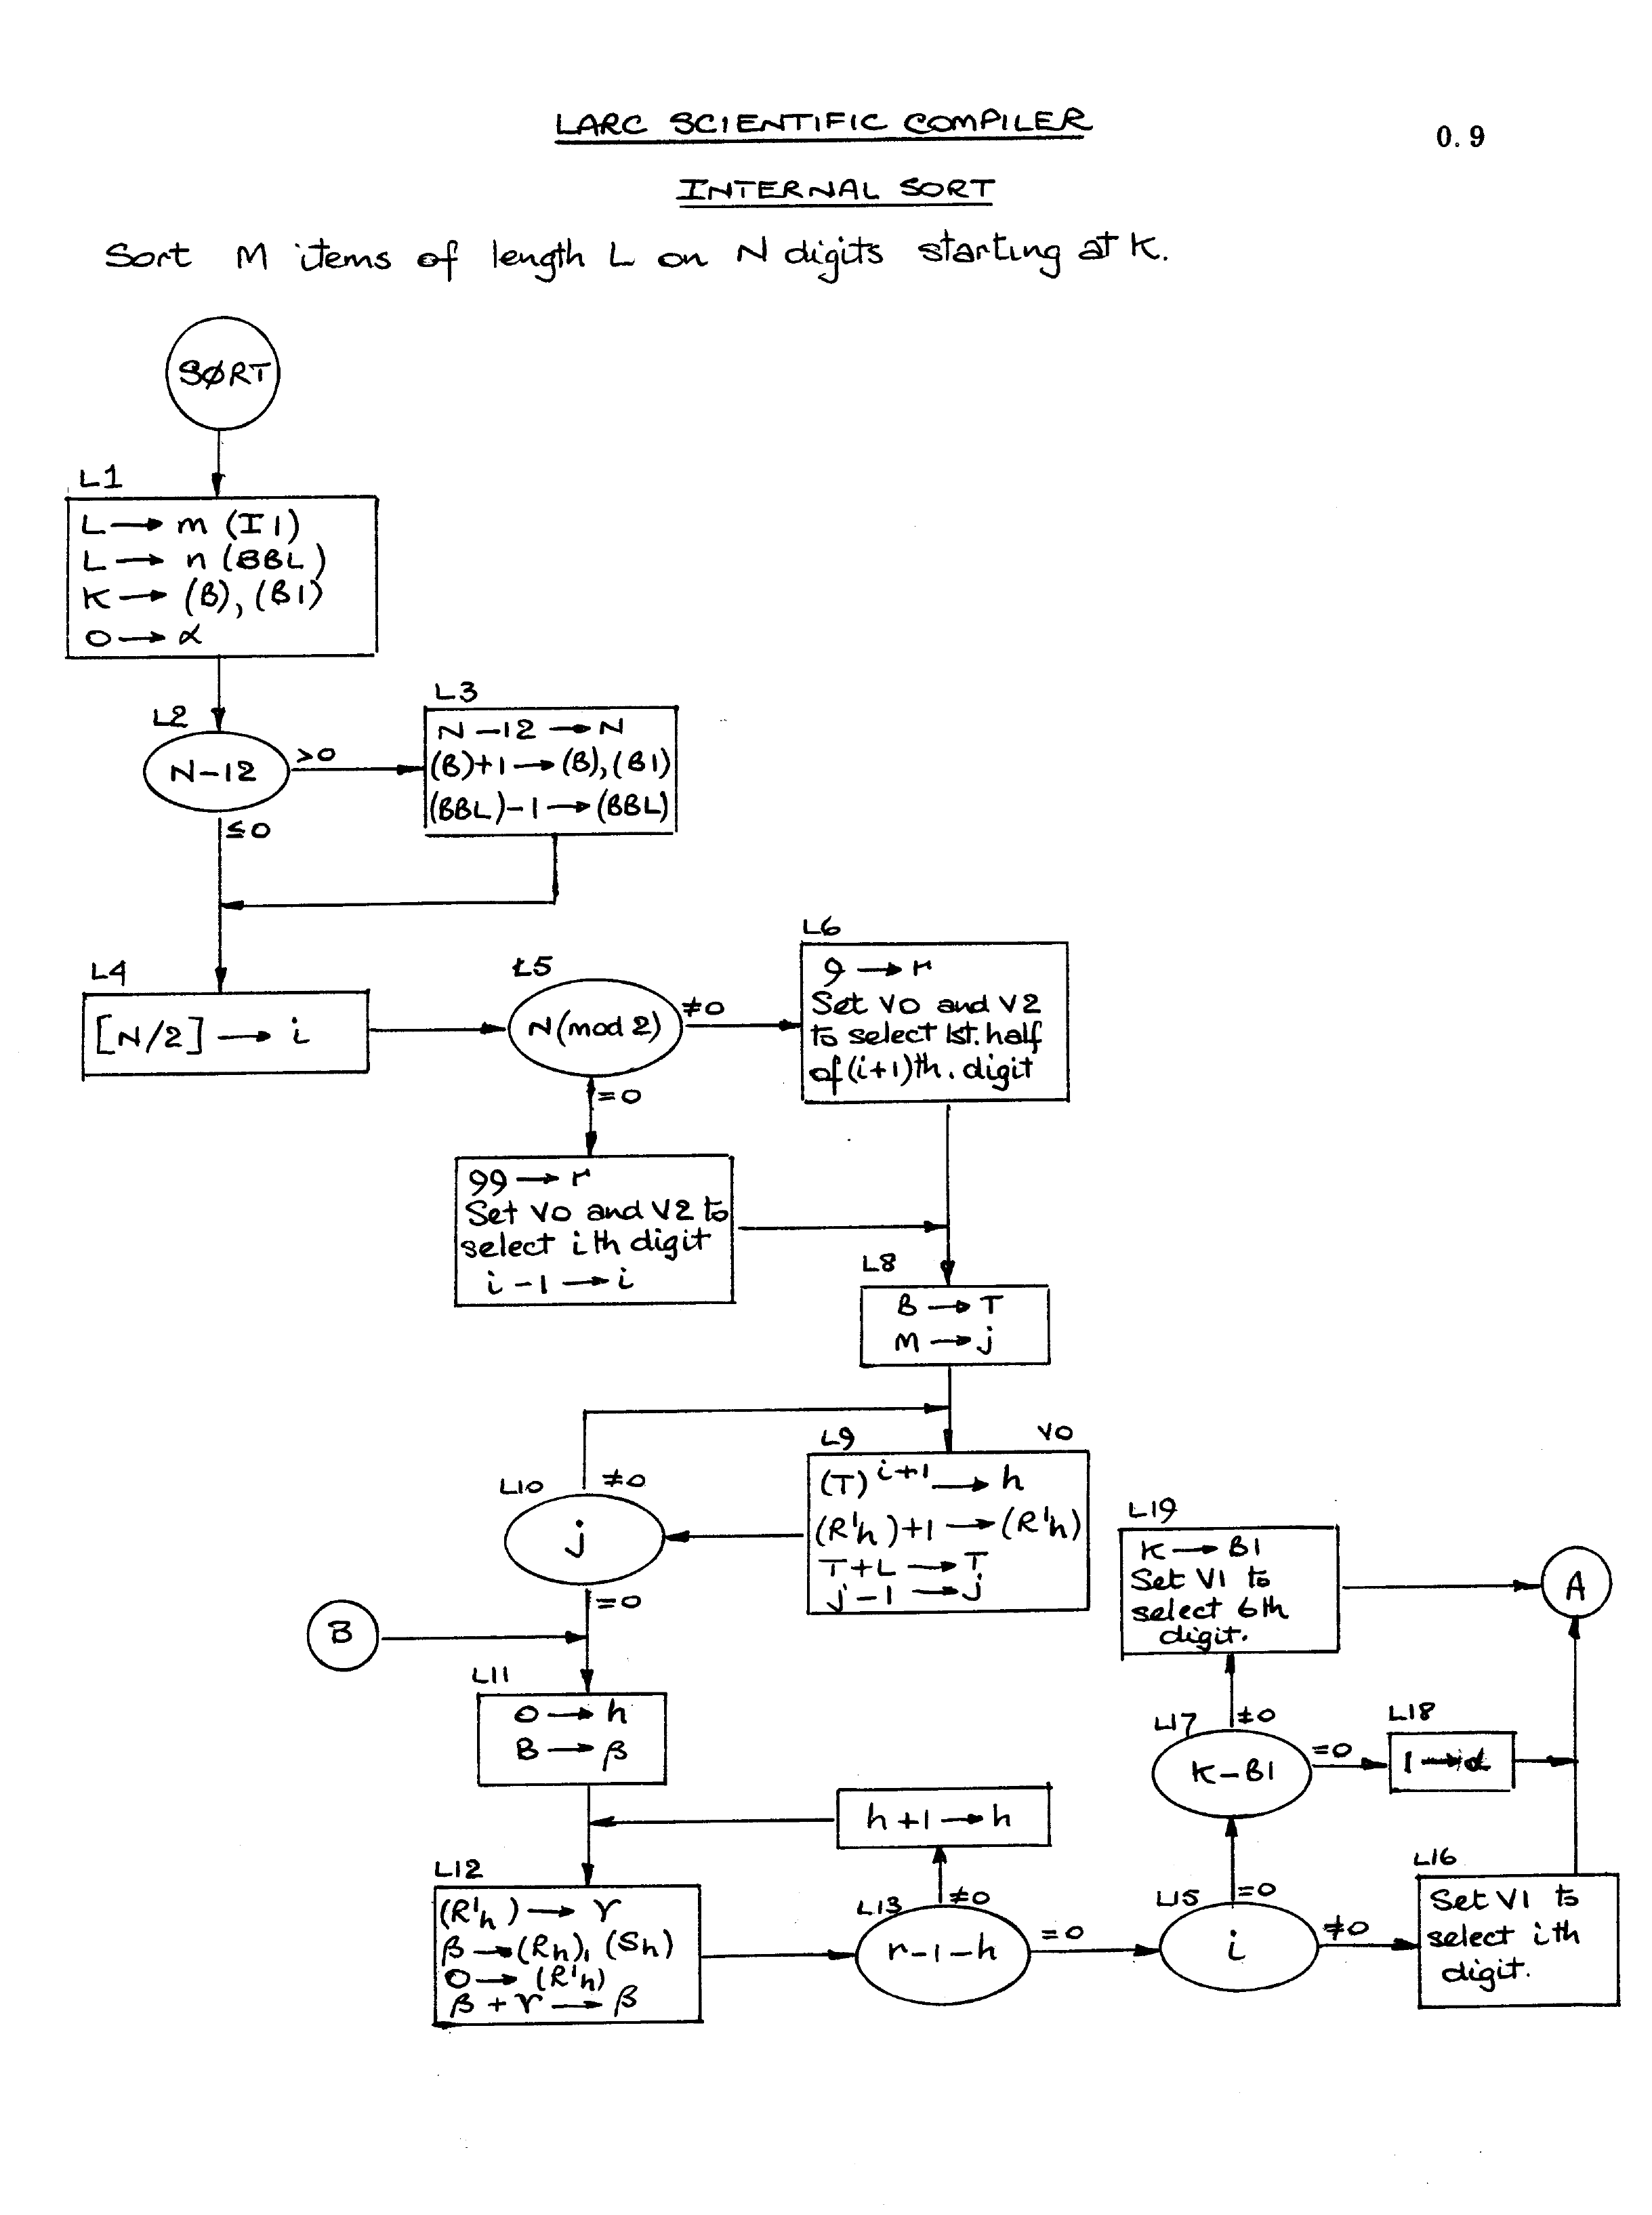 LARC SCIENTIFIC COMPILER
0.9
INTERNAL SORT
Sort M items of length L on N digits starting at K.
SØRT
L1
L → m (I1)
L → n (BBL)
K → (B), (B1)
0 → α
L2
N-12
>0
≤0
L3
N-12 → N
(B)+1 → (B), (B1)
(BBL)-1 → (BBL)
L4
[N/2] → i
L5
N(mod 2)
≠0
=0
L6
9 → r
Set V0 and V2
to select 1st. half
of (i+1)th. digit
99 → r
Set V0 and V2 to
select i th digit
i-1 → i
L8
B → T
M → j
L9
V0
(T)^{i+1} → h
(R'h)+1 → (R'h)
T+L → T
j-1 → j
L10
≠0
j
=0
B
L11
0 → h
B → β
h+1 → h
L12
(R'h) → γ
β → (Rh), (Sh)
0 → (R'h)
β + γ → β
L13
≠0
r-1-h
=0
L15
=0
i
≠0
L16
Set V1 to
select i th
digit.
L17
≠0
K-B1
=0
L18
1 → α
L19
K → B1
Set V1 to
select 6th
digit.
A